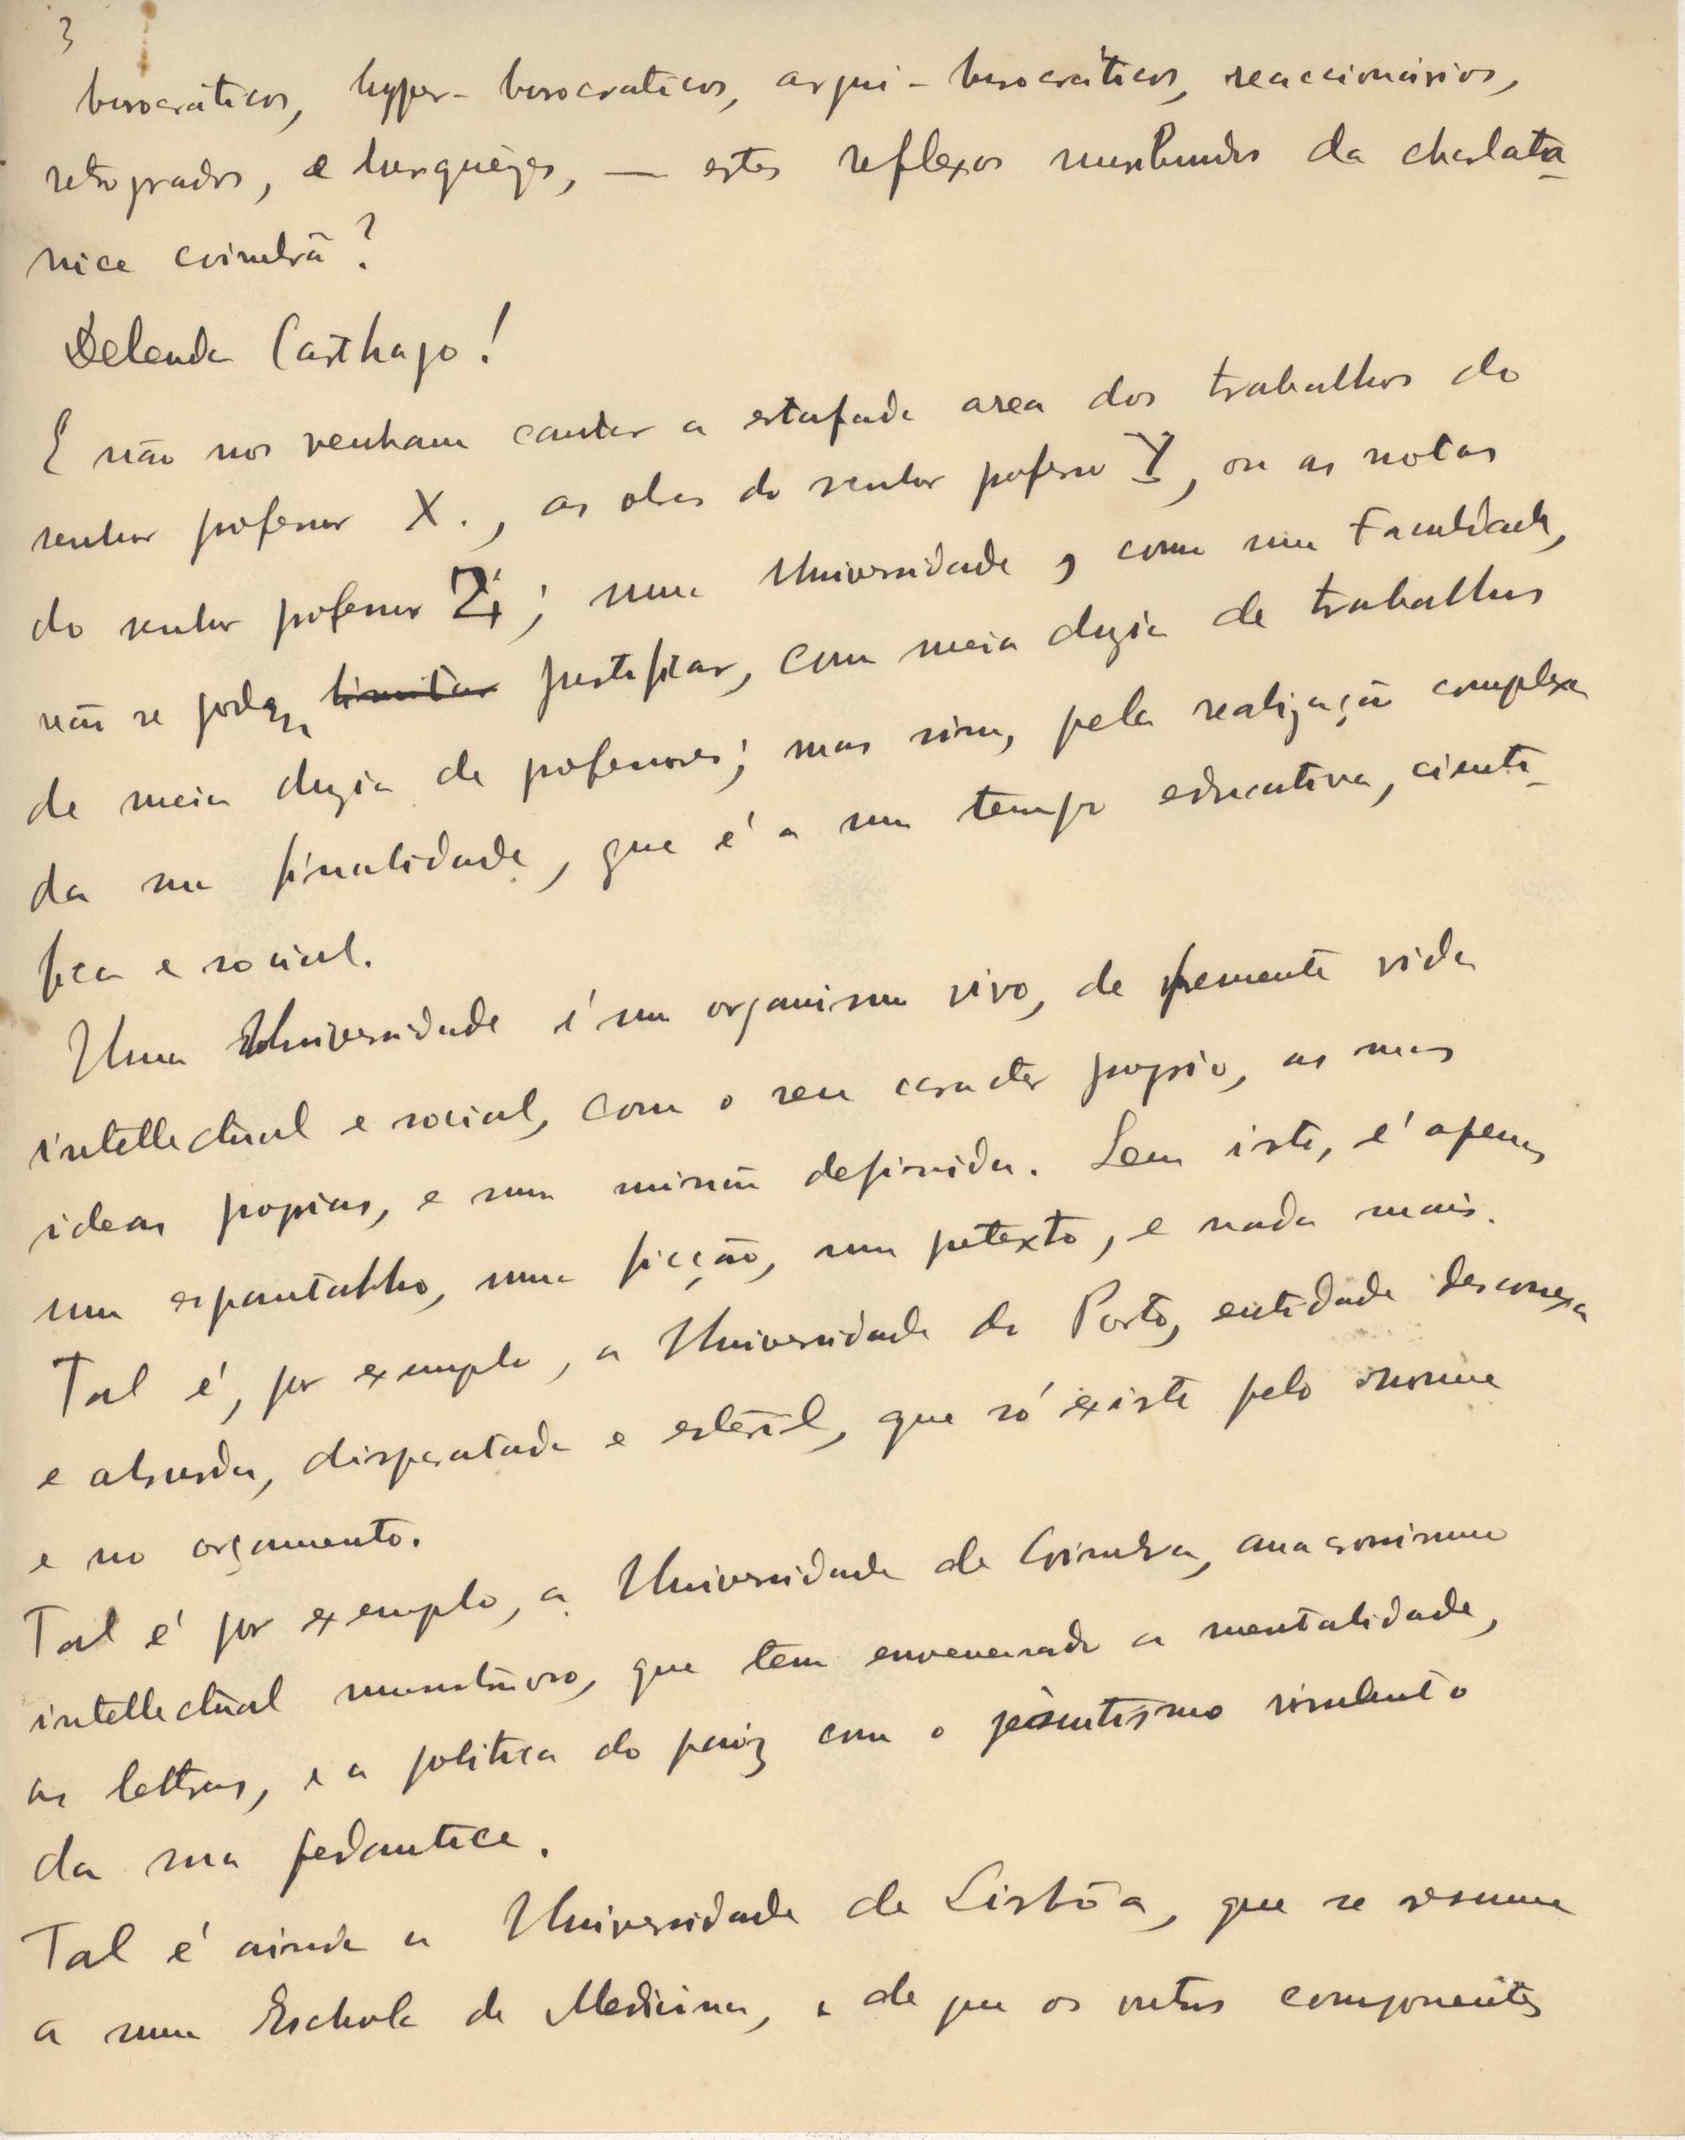 3
burocráticos, hyper-burocraticos, arqui-burocráticos, reaccionários,
retrogrados, e burguêzes, — estes reflexos moribundos da charlata-
nice coimbrã?
Delenda Carthago!
E não nos venham cantar a estafada area dos trabalhos do
senhor professor X., as obras do senhor professor Y, ou as notas
do senhor professor Z; uma Universidade, como uma Faculdade,
não se podem limitar justificar, com meia duzia de trabalhos
de meia duzia de professores; mas sim, pela realização complexa
da sua finalidade, que é a um tempo educativa, cienti-
fica e social.
Uma Universidade é um organismo vivo, de fremente vida
intellectual e social, com o seu caracter proprio, as suas
ideas proprias, e uma missão definida. Sem isto, é apenas
um espantalho, uma ficção, um pretexto, e nada mais.
Tal é, por exemplo, a Universidade do Porto, entidade desconexa
e absurda, disparatada e esteril, que só existe pelo nome
e no orçamento.
Tal é por exemplo, a Universidade de Coimbra, anacronismo
intellectual monstruoso, que tem envenenado a mentalidade,
as lettras, e a politica do paiz com o jesuitismo virulento
da sua pedantice.
Tal é ainda a Universidade de Lisbôa, que se resume
a uma Eschola de Medicina, e de que os outros componentes